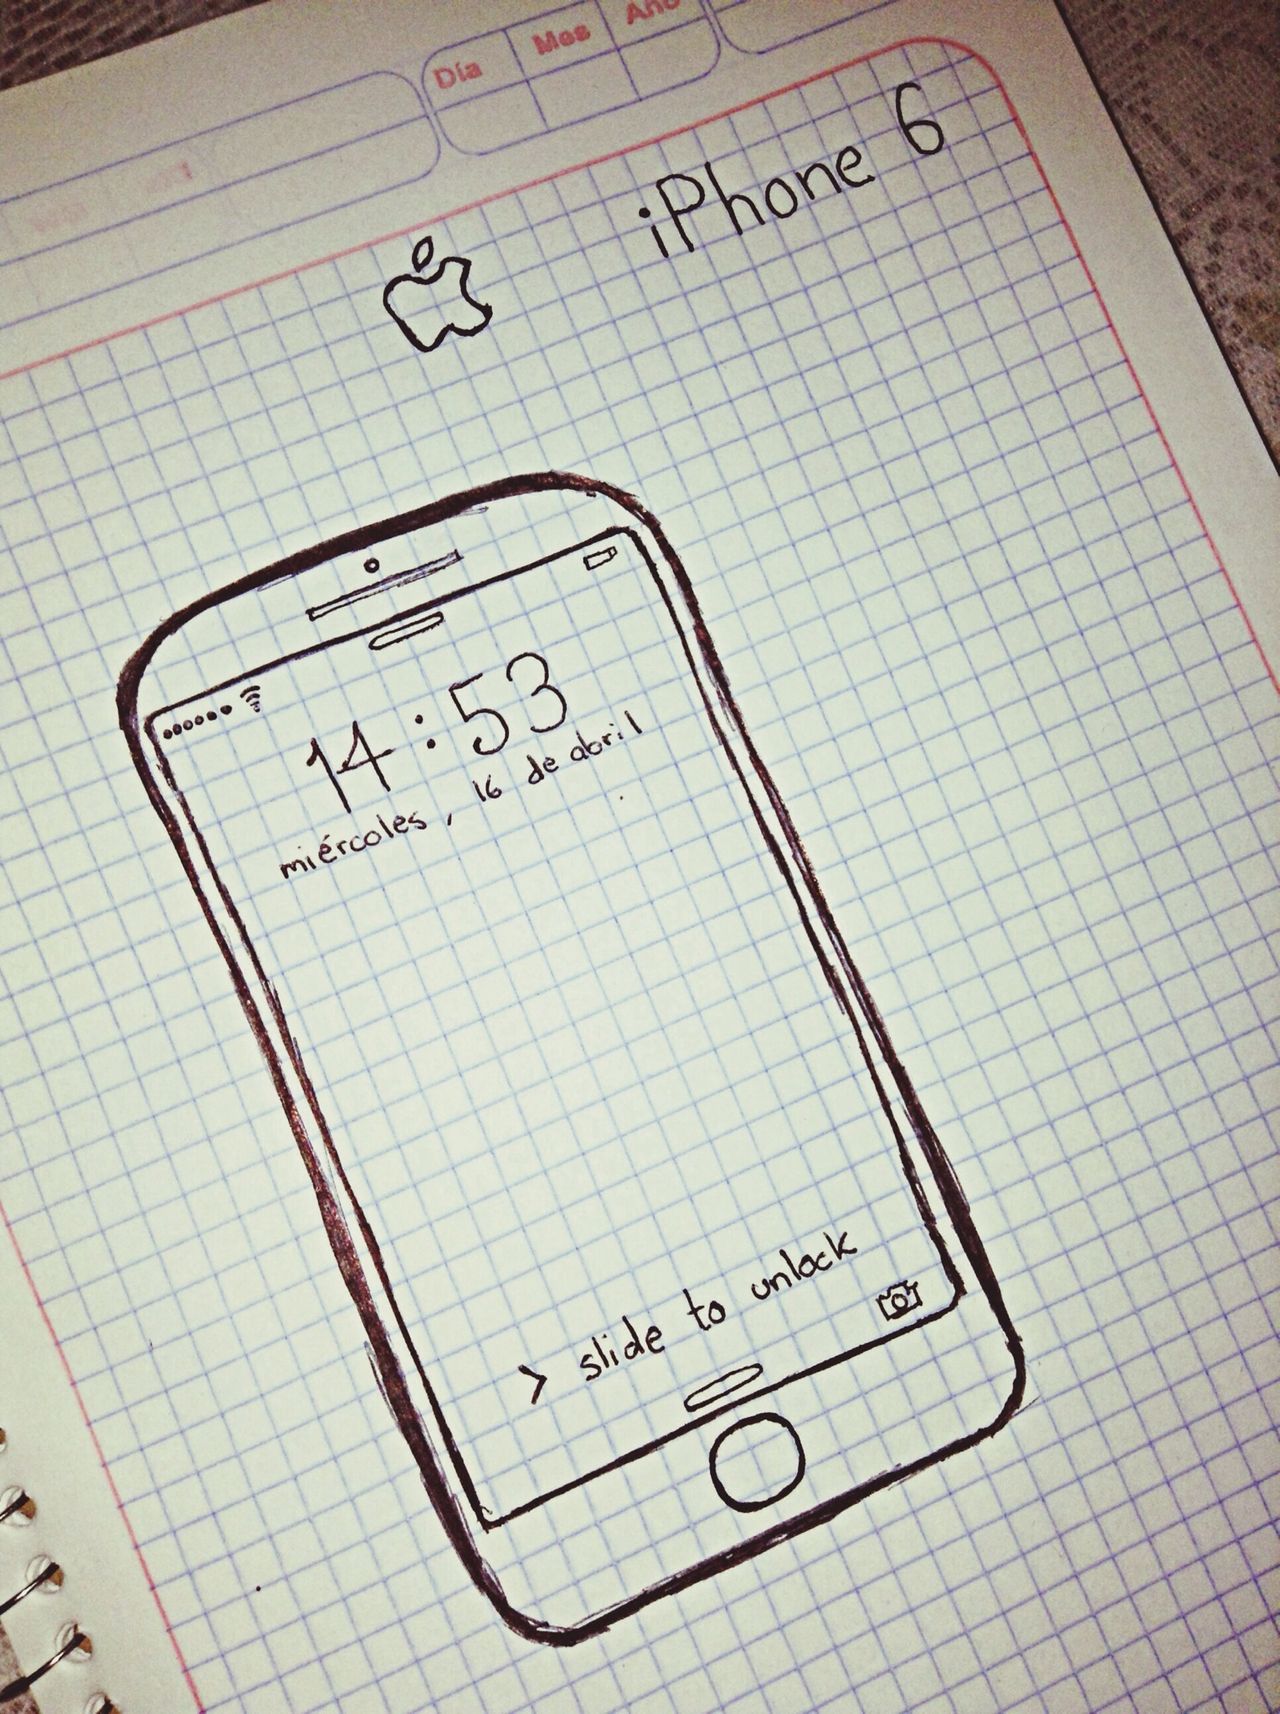 Día Mes Año
iPhone 6
14:53
miércoles, 16 de abril
> slide to unlock